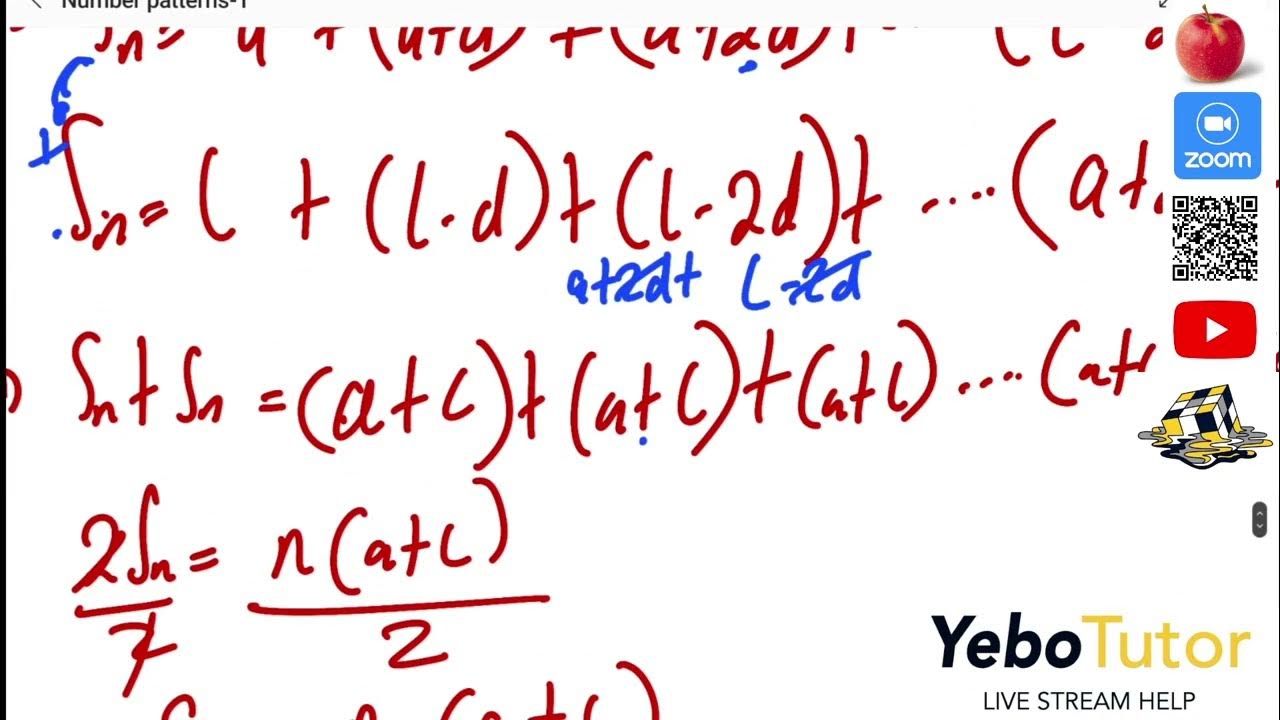 Number patterns-1
Sn = a + (a+d) + (a+2d) +
+
Sn = l + (l-d) + (l-2d) + .... (a+
a+2d + l-2d
Sn + Sn = (a+l) + (a+l) + (a+l) .... (a+
2Sn = n(a+l)
2 2
(a+l)
zoom
YeboTutor
LIVE STREAM HELP